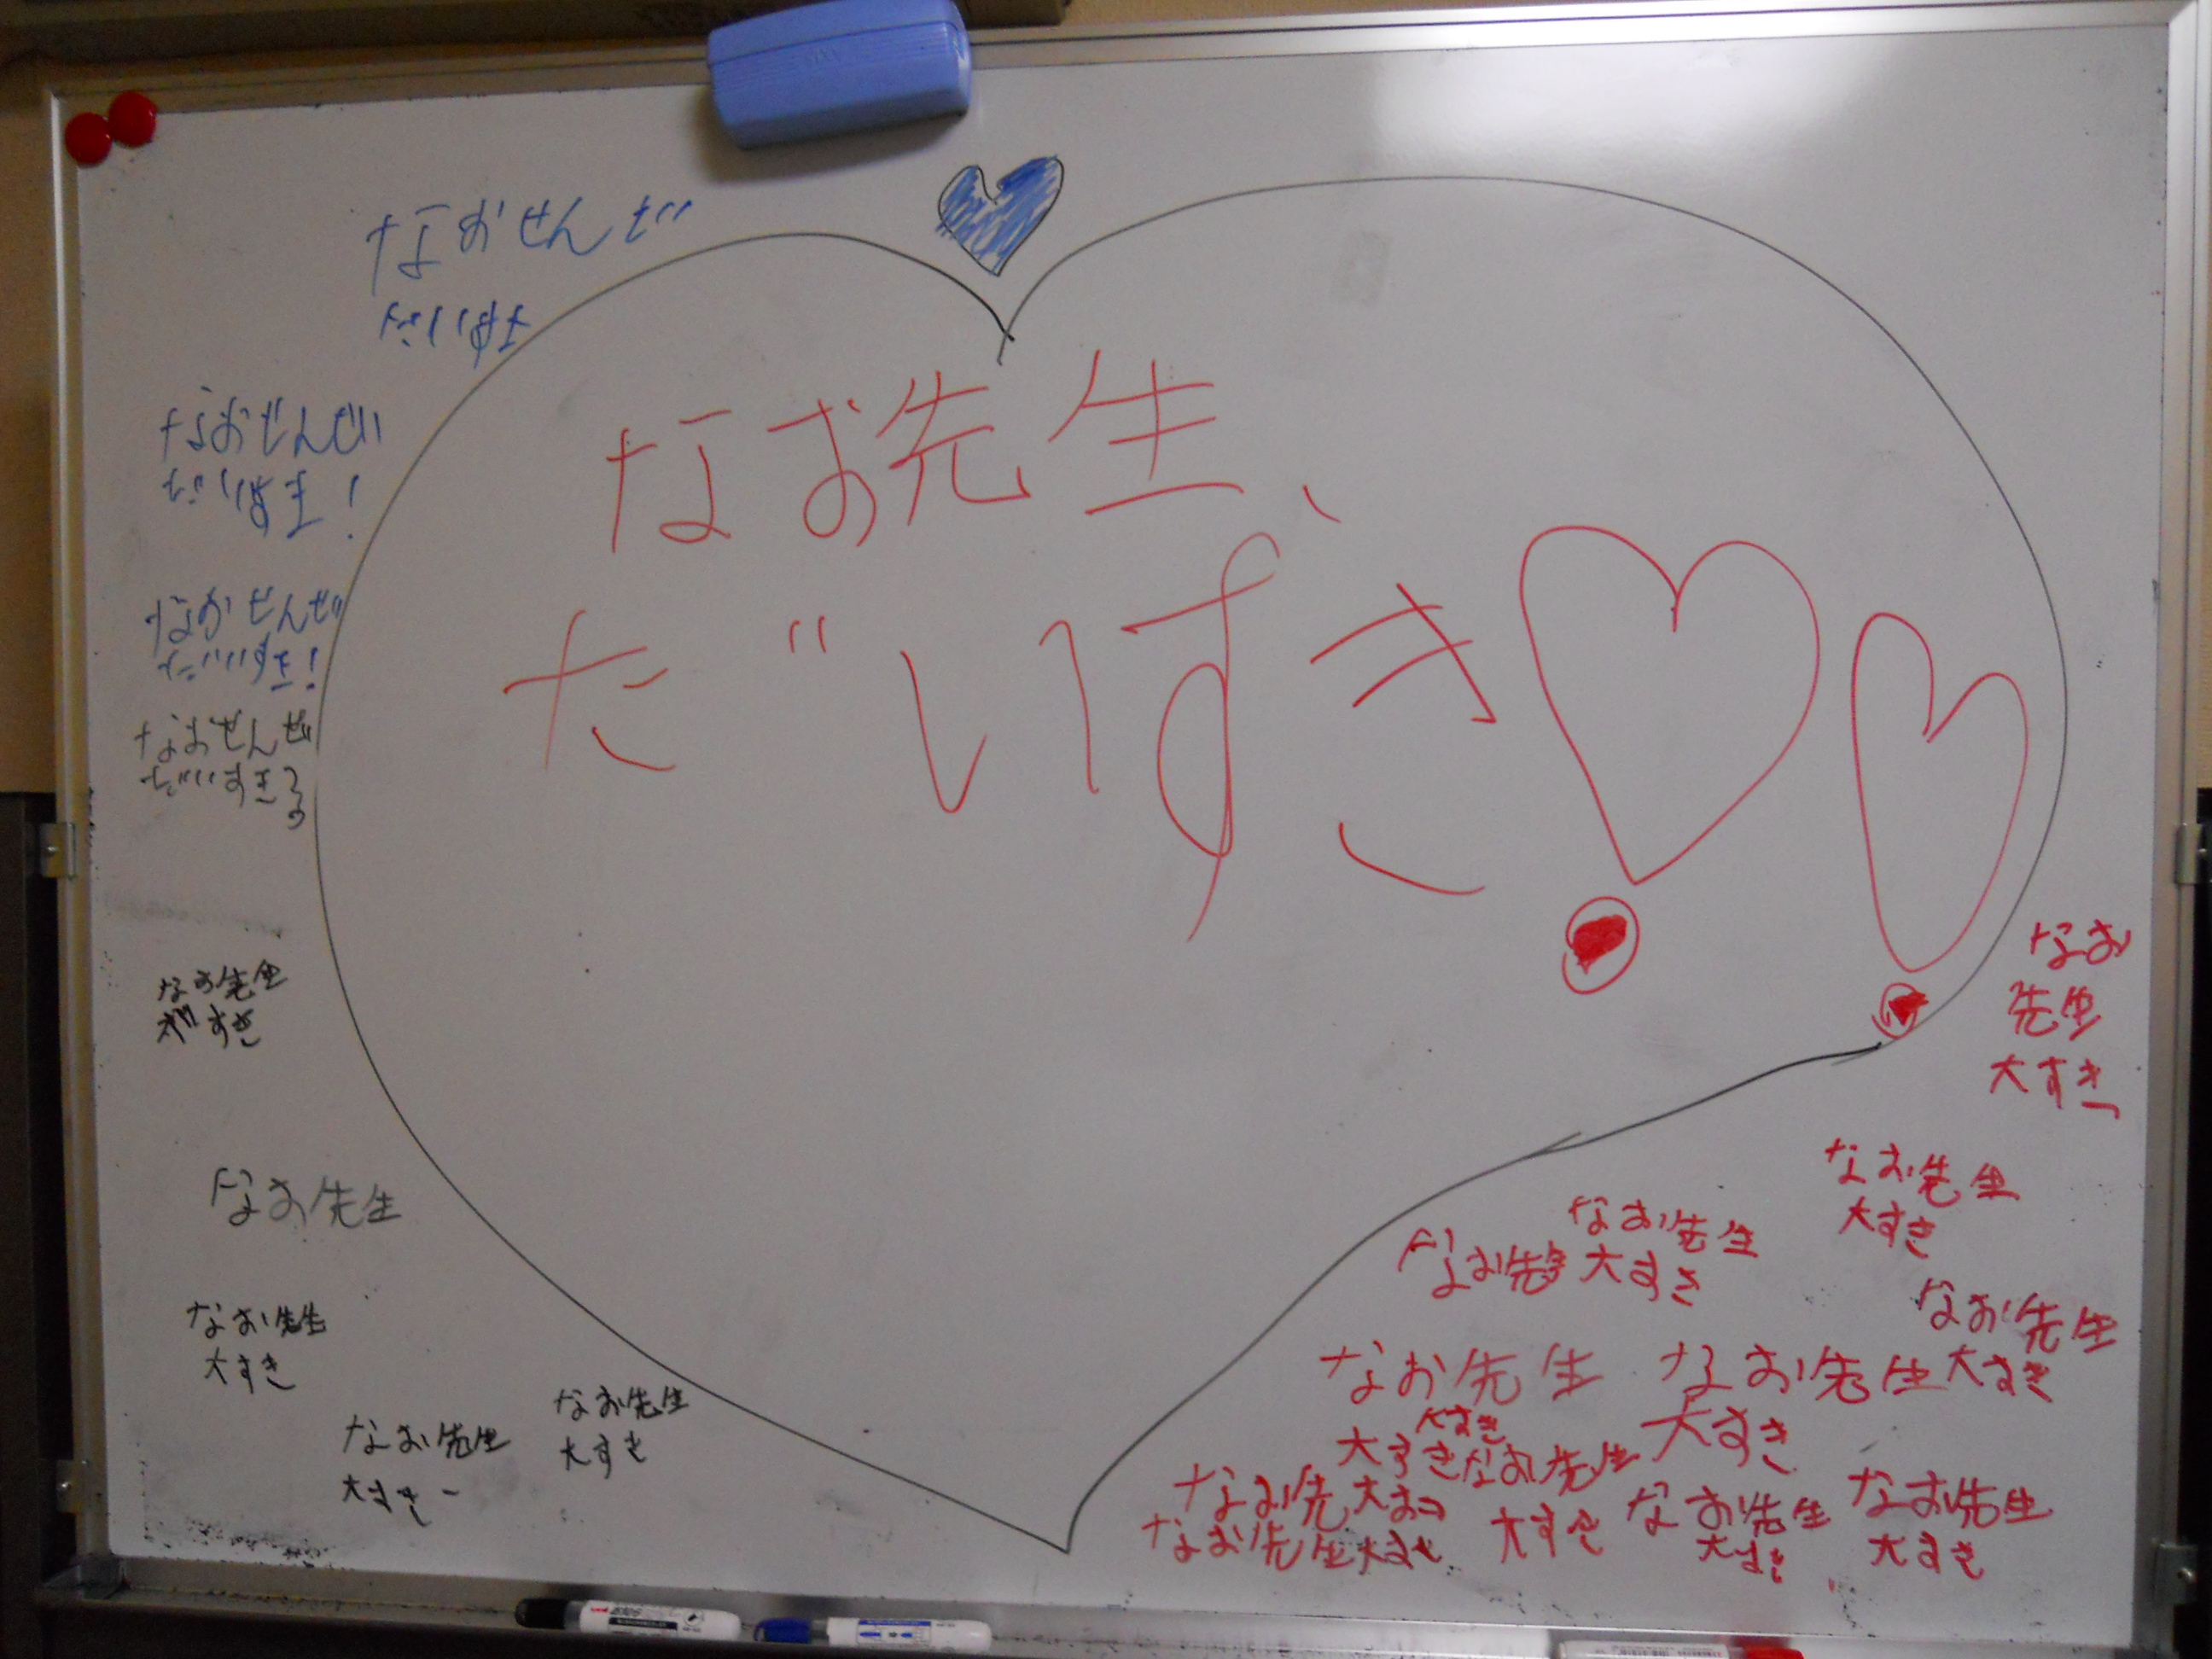 なおせんせ
だいすき
なおせんせい
だいすき!
なおせんせ
だいすき!
なおせんせ
だいすき
なお先生、
だいすき
なお先生
すき
なお先生
なお先生
大すき
なお先生
大すき
なお先生
大すき
なお
先生
大すき
なお先生
大すき
なお先生
大すき
なお先生
なお先生
大すき
なお先生
大すき
なお先生
大すき
大すき
なお先生
大すき
なお先
なお先生大すき
なお先生
大すき
なお先生
大すき